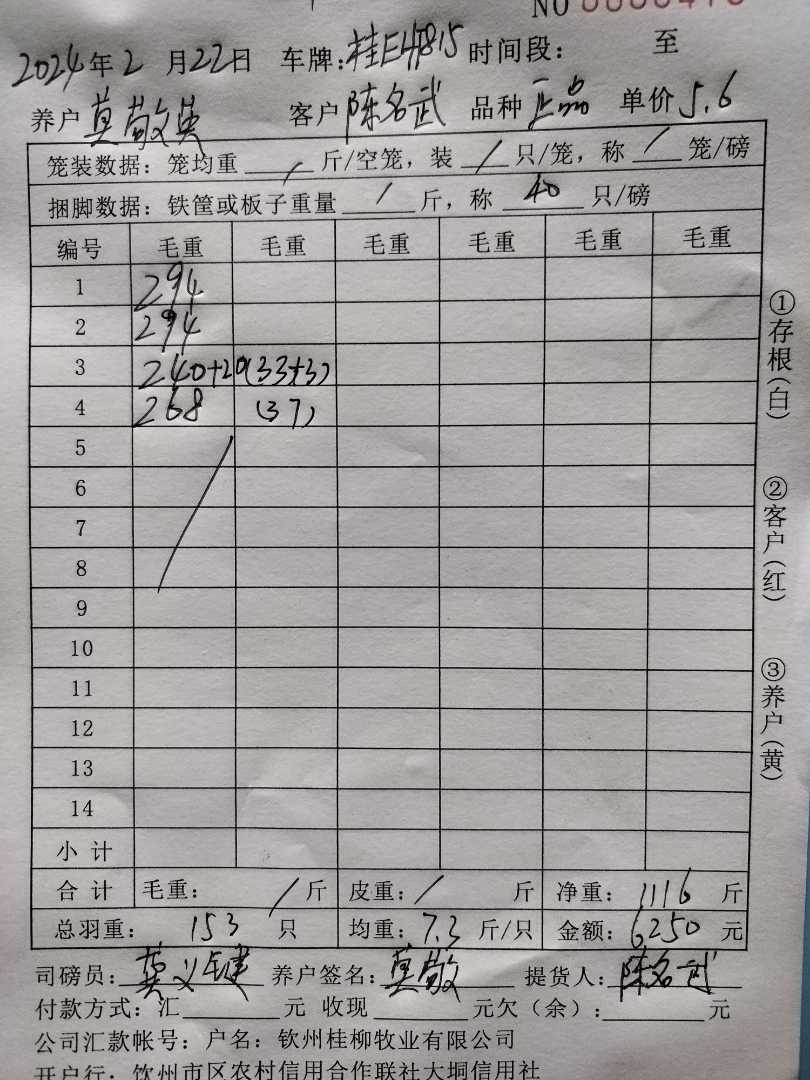 NO
2024年2月22日 车牌:桂E47815 时间段: 至
养户 莫敬英 客户 陈名武 品种 正品 单价 5.6
笼装数据: 笼均重 / 斤/空笼, 装 / 只/笼, 称 / 笼/磅
捆脚数据: 铁筐或板子重量 / 斤, 称 40 只/磅
编号 毛重 毛重 毛重 毛重 毛重 毛重
1 294
2 294
3 240+20(33+3)
4 268 (37)
5
6
7
8
9
10
11
12
13
14
小计
合计 毛重: / 斤 皮重: / 斤 净重: 1116 斤
总羽重: 153 只 均重: 7.3 斤/只 金额: 6250 元
司磅员: 莫义健 养户签名: 莫敬 提货人: 陈名武
付款方式: 汇 元 收现 元欠(余): 元
公司汇款帐号: 户名: 钦州桂柳牧业有限公司
开户行: 钦州市区农村信用合作联社大垌信用社
①存根(白)
②客户(红)
③养户(黄)